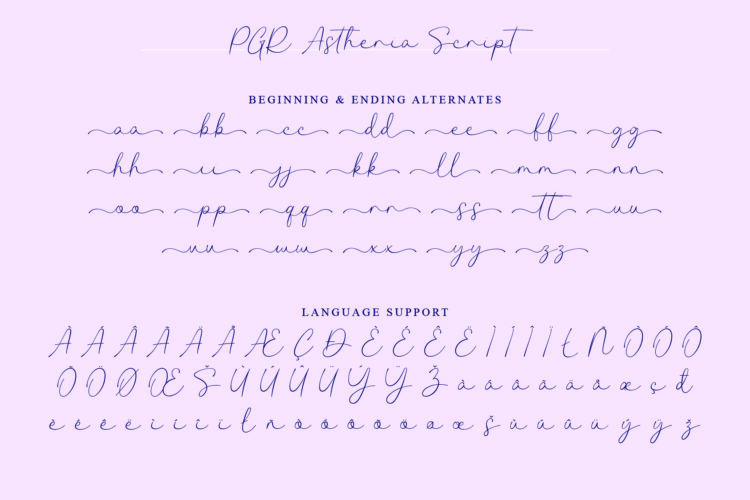 PGR Asthenia Script
BEGINNING & ENDING ALTERNATES
aa bb cc dd ee ff gg
hh ii jj kk ll mm nn
oo pp qq rr ss tt uu
vv ww xx yy zz
LANGUAGE SUPPORT
À Á Â Ã Ä Å Æ Ç Ð È É Ê Ë Ì Í Î Ï Ł Ñ Ò Ó Ô
Õ Ö Ø Œ Š Ù Ú Û Ü Ý Ÿ Ž à á â ã ä å æ ç đ
è é ê ë ì í î ï ł ñ ò ó ô õ ö œ š ù ú û ü ý ÿ ž